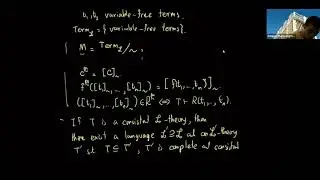 t₁, t₂ variable-free terms.
Term₂ = { variable-free terms}.
M = Term₂/~ ;
cᴹ = [c]~
fᴹ([t₁]~, ..., [tₙ]~) = [f(t₁, .., tₙ)]~
([t₁]~, ..., [tₙ]~) ∈ Rᴹ ⇔ T ⊢ R(t₁, .., tₙ).
- If T is a consistent L-theory, then
there exist a language L' ⊇ L and an L'-theory
T' st T ⊆ T', T' is complete and consistent